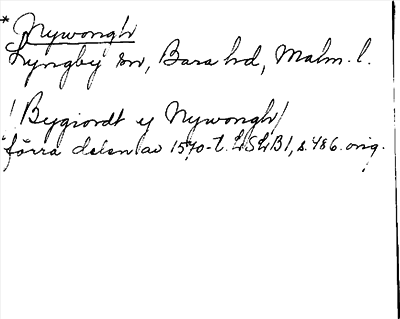 * Nywongh
Lyngby sn, Bara hd, Malm. l.
/ Bygiordt y Nywongh /
förra delen av 1570-t. LSLB1, s. 486. orig.